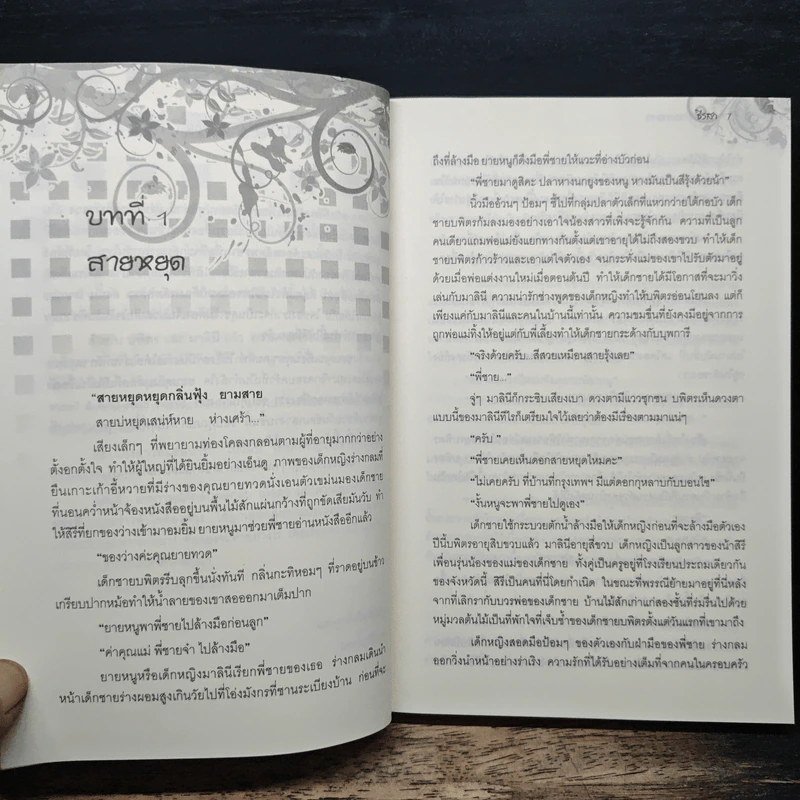 บทที่ 1
สายหยุด
"สายหยุดหยุดกลิ่นฟุ้ง ยามสาย
สายบ่หยุดเสน่ห์หาย ห่างเศร้า..."
เสียงเล็กๆ ที่พยายามท่องโคลงกลอนตามผู้ที่อายุมากกว่าอย่าง
ตั้งอกตั้งใจ ทำให้ผู้ใหญ่ที่ได้ยินยิ้มอย่างเอ็นดู ภาพของเด็กหญิงร่างกลมที่
ยืนเกาะเก้าอี้หวายที่มีร่างของคุณยายทวดนั่งเอนตัวเขม่นมองเด็กชาย
ที่นอนคว่ำหน้าจ้องหนังสืออยู่บนพื้นไม้สักแผ่นกว้างที่ถูกขัดเสียมันวับ ทำ
ให้สิรีที่ยกของว่างเข้ามาอมยิ้ม ยายหนูมาช่วยพี่ชายอ่านหนังสืออีกแล้ว
"ของว่างค่ะคุณยายทวด"
เด็กชายบพิตรรีบลุกขึ้นนั่งทันที กลิ่นกะทิหอมๆ ที่ราดอยู่บนข้าว
เกรียบปากหม้อทำให้น้ำลายของเขาสอออกมาเต็มปาก
"ยายหนูพาพี่ชายไปล้างมือก่อนลูก"
"ค่าคุณแม่ พี่ชายจ๋า ไปล้างมือ"
ยายหนูหรือเด็กหญิงมาลินีเรียกพี่ชายของเธอ ร่างกลมเดินนำ
หน้าเด็กชายร่างผอมสูงเกินวัยไปที่โอ่งมังกรที่ชานระเบียงบ้าน ก่อนที่จะ
ชีรสา 7
ถึงที่ล้างมือ ยายหนูก็ดึงมือพี่ชายให้แวะที่อ่างบัวก่อน
"พี่ชายมาดูสิคะ ปลาหางนกยูงของหนู หางมันเป็นสีรุ้งด้วยน้า"
นิ้วมืออ้วนๆ ป้อมๆ ชี้ไปที่กลุ่มปลาตัวเล็กที่แหวกว่ายใต้กอบัว เด็ก
ชายบพิตรก้มลงมองอย่างเอาใจน้องสาวที่เพิ่งจะรู้จักกัน ความที่เป็นลูก
คนเดียวแถมพ่อแม่ยังแยกทางกันตั้งแต่เขาอายุได้ไม่ถึงสองขวบ ทำให้เด็ก
ชายบพิตรก้าวร้าวและเอาแต่ใจตัวเอง จนกระทั่งแม่ของเขาไปรับตัวมาอยู่
ด้วยเมื่อพ่อแต่งงานใหม่เมื่อตอนต้นปี ทำให้เด็กชายได้มีโอกาสที่จะมาวิ่ง
เล่นกับมาลินี ความน่ารักช่างพูดของเด็กหญิงทำให้บพิตรอ่อนโยนลง แต่ก็
เพียงแค่กับมาลินีและคนในบ้านนี้เท่านั้น ความขมขื่นที่ยังคงมีอยู่จากการ
ถูกพ่อแม่ทิ้งให้อยู่แต่กับพี่เลี้ยงทำให้เด็กชายกระด้างกับบุพการี
"จริงด้วยครับ...สีสวยเหมือนสายรุ้งเลย"
"พี่ชาย..."
จู่ๆ มาลินีก็กระซิบเสียงเบา ดวงตามีแววซุกซน บพิตรเห็นดวงตา
แบบนี้ของมาลินีทีไรก็เตรียมใจไว้เลยว่าต้องมีเรื่องตามมาแน่ๆ
"ครับ "
"พี่ชายเคยเห็นดอกสายหยุดไหมคะ"
"ไม่เคยครับ ที่บ้านที่กรุงเทพฯ มีแต่ดอกกุหลาบกับบอนไซ"
"งั้นหนูจะพาพี่ชายไปดูเอง"
เด็กชายใช้กระบวยตักน้ำล้างมือให้เด็กหญิงก่อนที่จะล้างมือตัวเอง
ปีนี้บพิตรอายุสิบขวบแล้ว มาลินีอายุสี่ขวบ เด็กหญิงเป็นลูกสาวของน้าสิรี
เพื่อนรุ่นน้องของแม่ของเด็กชาย ทั้งคู่เป็นครูอยู่ที่โรงเรียนประถมเดียวกัน
ของจังหวัดนี้ สิรีเป็นคนที่นี่โดยกำเนิด ในขณะที่พรรณีย้ายมาอยู่ที่นี่หลัง
จากที่เลิกรากับบวรพ่อของเด็กชาย บ้านไม้สักเก่าแก่สองชั้นที่ร่มรื่นไปด้วย
หมู่มวลต้นไม้เป็นที่พักใจที่เจ็บช้ำของเด็กชายบพิตรตั้งแต่วันแรกที่เขามาถึง
เด็กหญิงสอดมือป้อมๆ ของตัวเองกับฝ่ามือของพี่ชาย ร่างกลม
ออกวิ่งนำหน้าอย่างร่าเริง ความรักที่ได้รับอย่างเต็มที่จากคนในครอบครัว